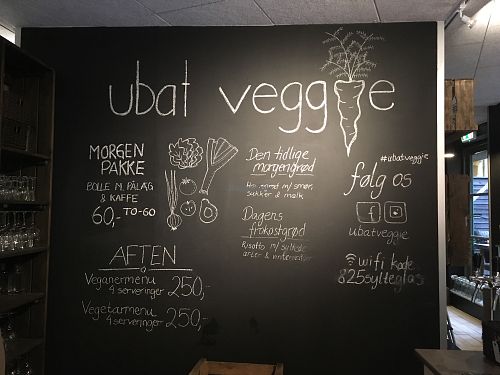 ubat veggie
MORGEN
PAKKE
BOLLE M. PÅLÆG
& KAFFE
60,- TO-GO
AFTEN
Veganermenu
4 serveringer 250,-
Vegetarmenu
4 serveringer 250,-
Den tidlige
morgengrød
m/ smør,
sukker & mælk
Dagens
frokostgrød
Risotto m/ syltede
ærter &
#ubatveggie
følg os
f
ubatveggie
wifi kode
825sylteglas